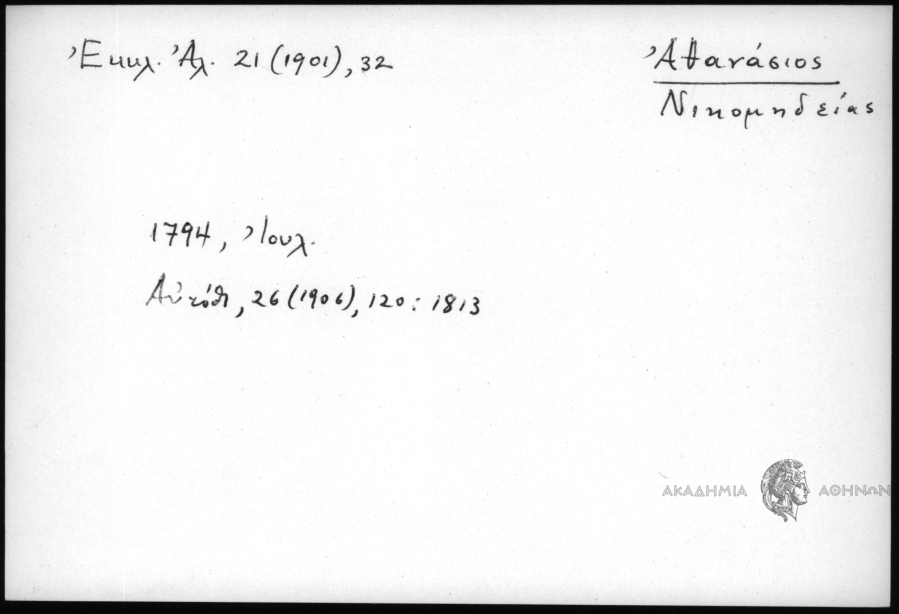 Ἐκκλ. Ἀλ. 21 (1901), 32
Ἀθανάσιος
Νικομηδείας
1794, Ἰουλ.
Αὐτόθι, 26 (1906), 120 : 1813
ΑΚΑΔΗΜΙΑ ΑΘΗΝΩΝ